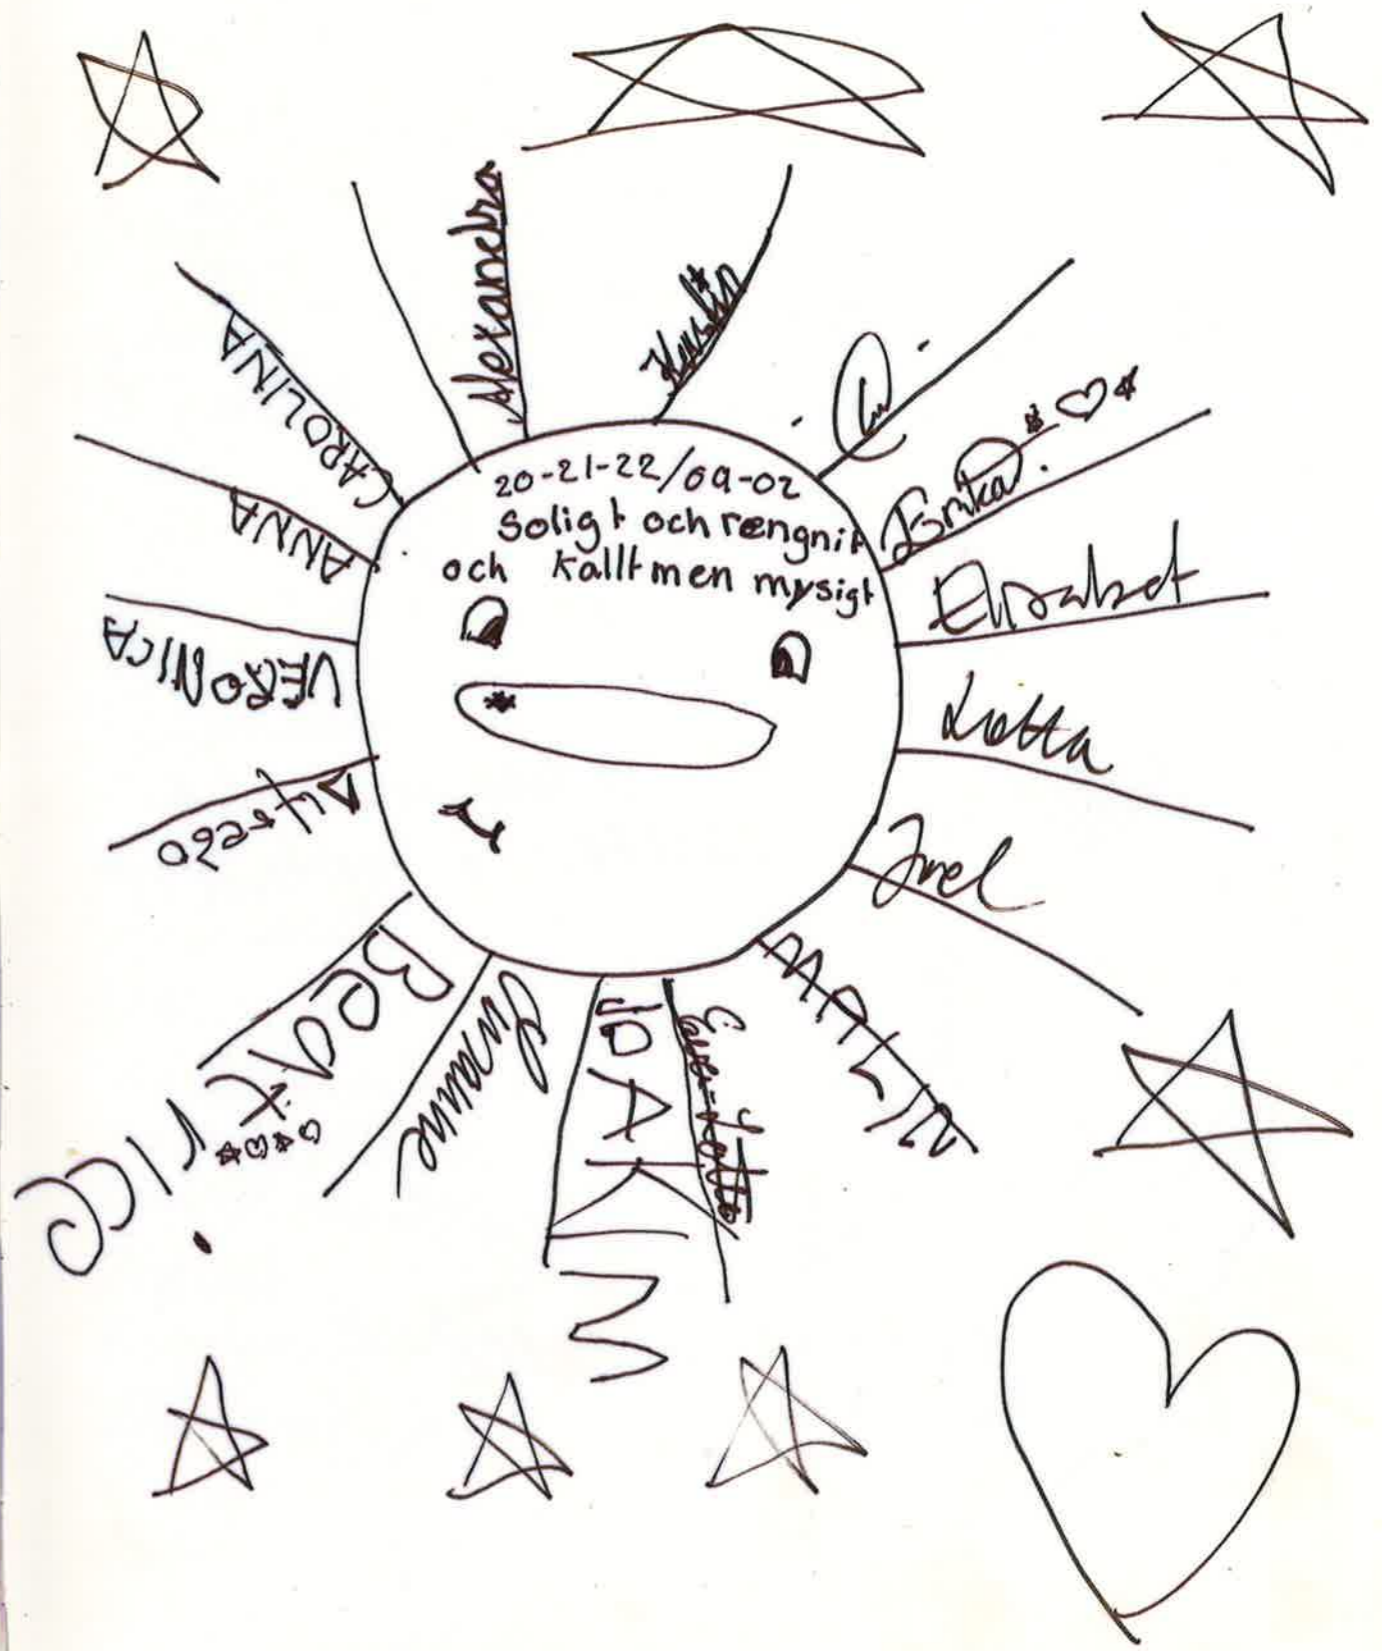 20-21-22/09-02
Soligt och rengnit
och kallt men mysigt
Alexandra
Erika
Elisabet
Lotta
MALIN
JOAKIM
Susanne
Beatrice
Alfredo
VERONICA
ANNA
CAROLINA